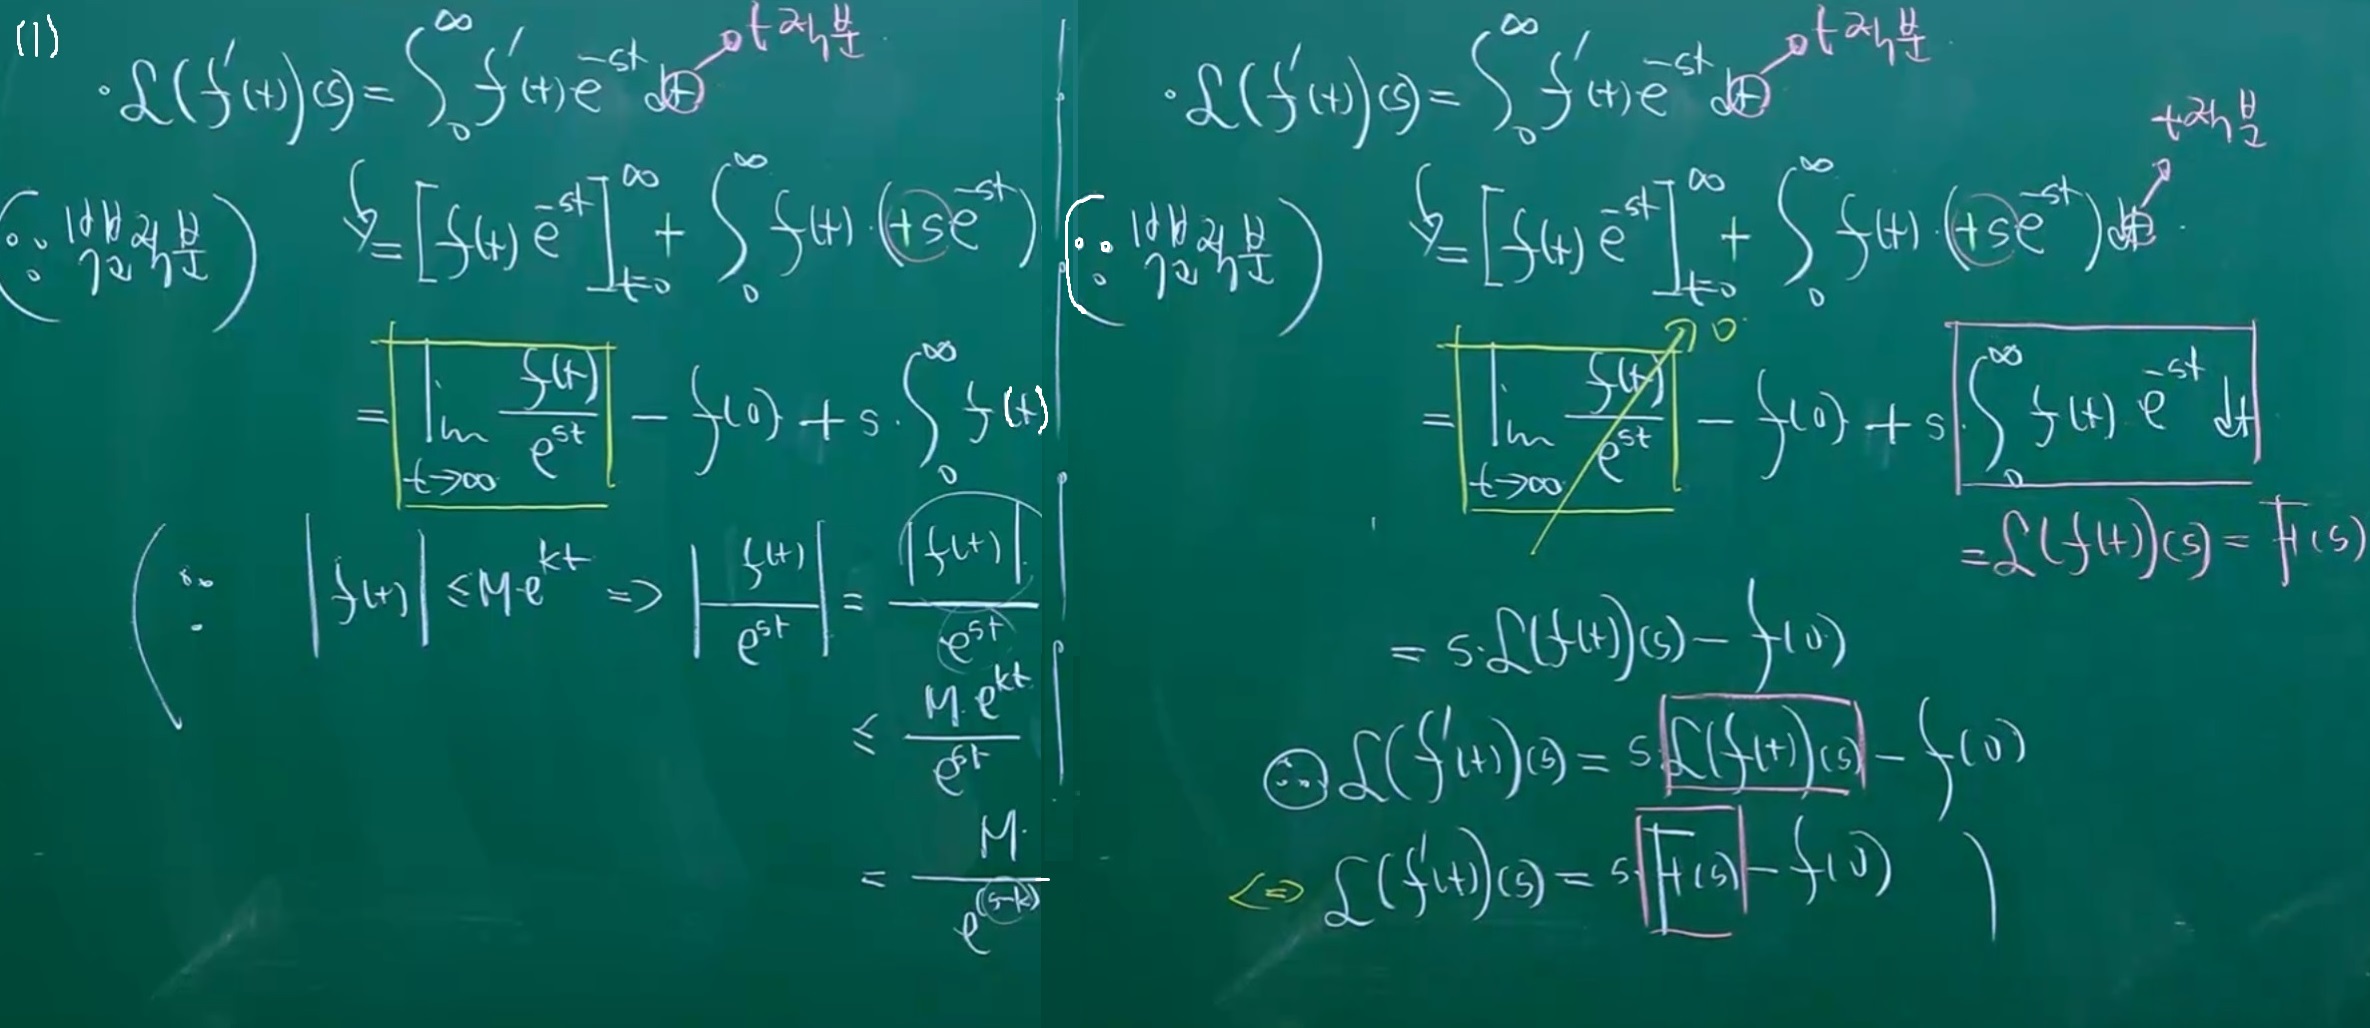 (1)
· ℒ(f'(t))(s) = ∫₀^∞ f'(t) e^{-st} dt
t 적분
(∵ 부분적분) = [f(t) e^{-st}]_{t=0}^∞ + ∫₀^∞ f(t) · (+s e^{-st})
= lim_{t→∞} f(t)/e^{st} - f(0) + s · ∫₀^∞ f(t)
(∵ |f(t)| ≤ M·e^{kt} ⇒ |f(t)/e^{st}| = |f(t)|/e^{st}
≤ M·e^{kt}/e^{st}
= M·/e^{(s-k)}
· ℒ(f'(t))(s) = ∫₀^∞ f'(t) e^{-st} dt
t 적분
(∵ 부분적분) = [f(t) e^{-st}]_{t=0}^∞ + ∫₀^∞ f(t) · (+s e^{-st}) dt
t 적분
= lim_{t→∞} f(t)/e^{st} → 0 - f(0) + s · ∫₀^∞ f(t) e^{-st} dt
= ℒ(f(t))(s) = F(s)
= s·ℒ(f(t))(s) - f(0)
∴ ℒ(f'(t))(s) = s·ℒ(f(t))(s) - f(0)
⇔ ℒ(f'(t))(s) = s·F(s) - f(0) )